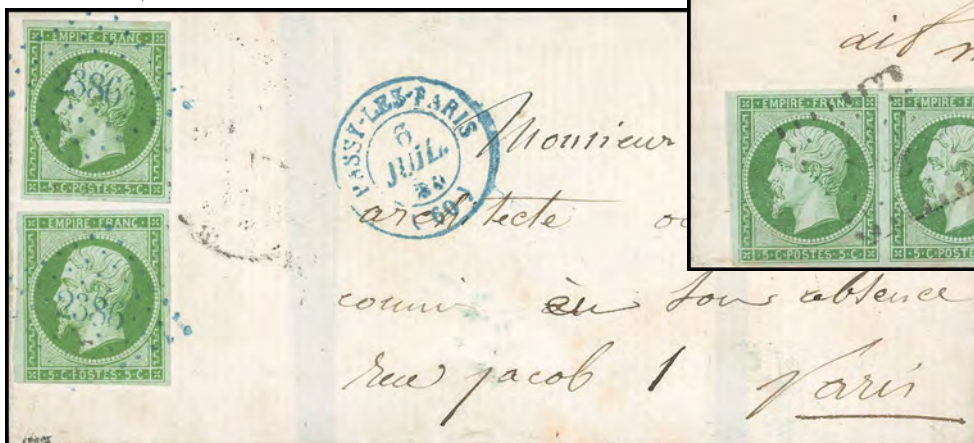 EMPIRE·FRANC·
2386
5·C·POSTES·5·C
EMPIRE·FRANC·
2386
5·C·POSTES·5·C
PASSY-LES-PARIS
6
JUIL.
(60)
Monsieur
architecte
son absence
rue jacob 1
Paris
ait
EMPIRE·FRANC·
5·C·POSTES·5·C
EMPIRE·FR
5·C·POSTES